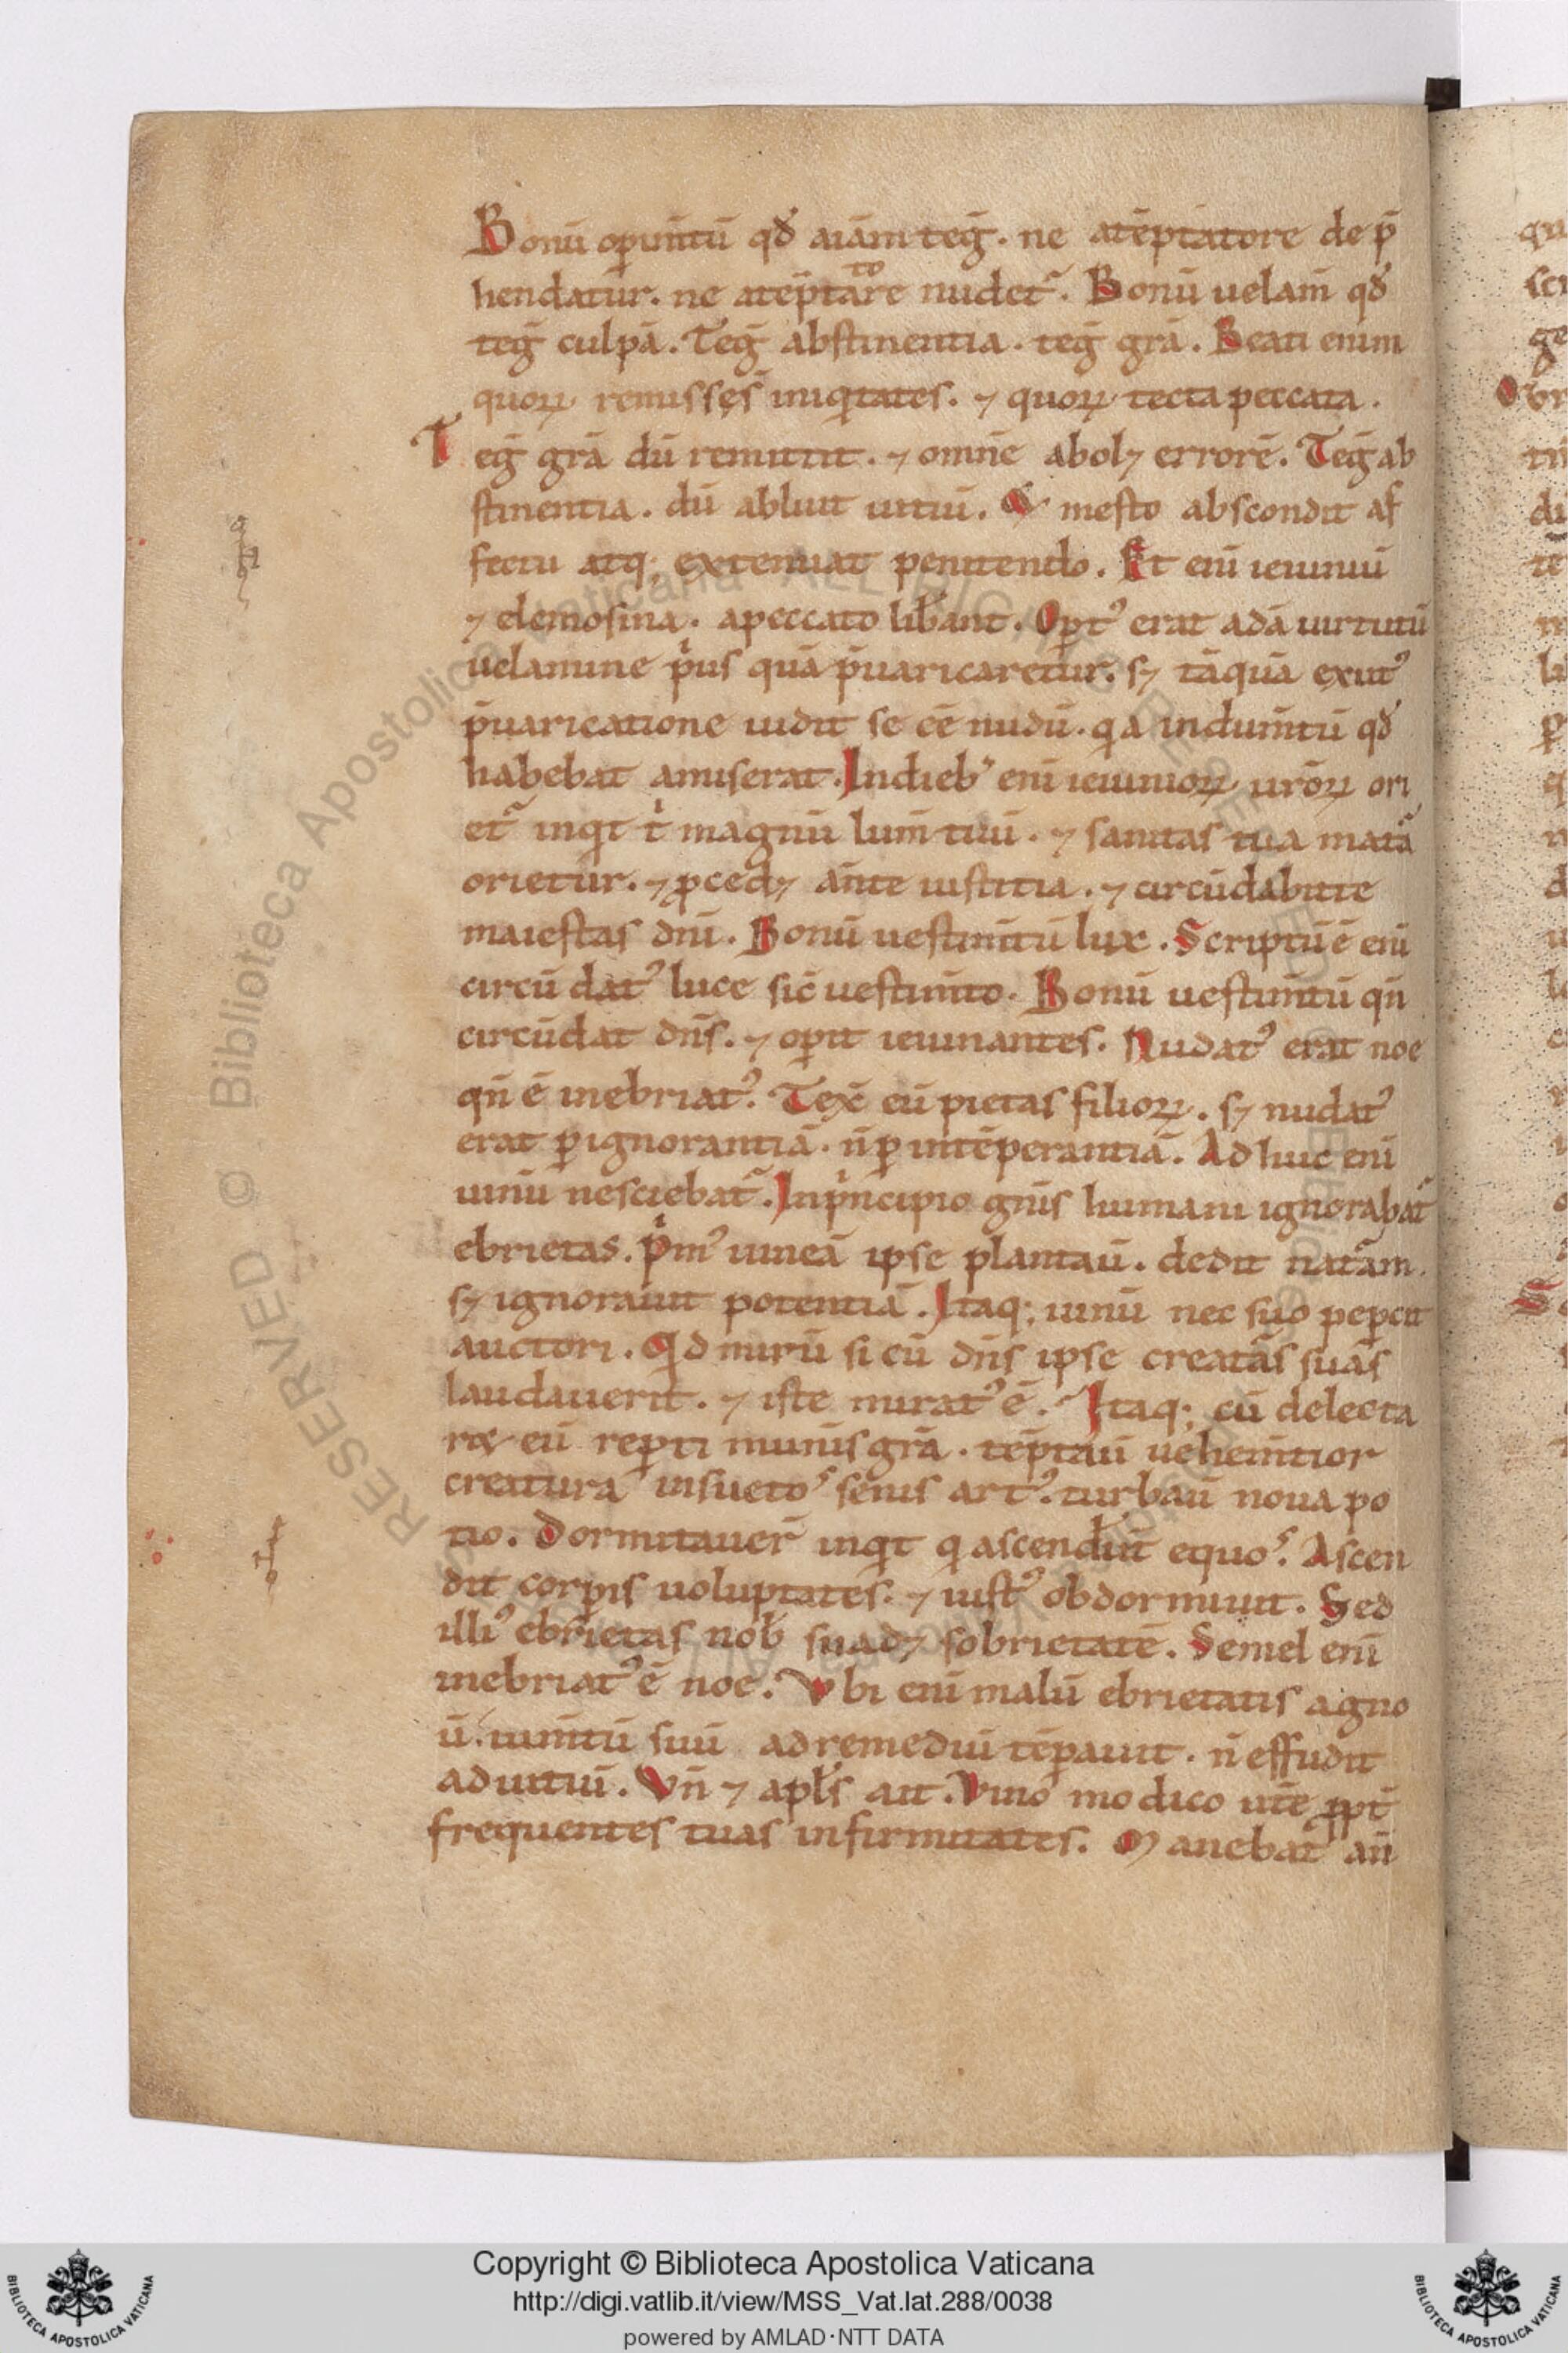 Bonū op̄im̄tū qđ aīam teḡ. ne atēptatore dep̄
hendatur. ne atēptatore nudet᷑. Bonū uelam̄ qđ
teḡ culpā. Teḡ abstinentia. teḡ gr̄a. Beati enim
quoꝝ remissęs̄ iniq̇tates. ⁊ quoꝝ tecta peccata.
Teḡ gr̄a dū remittit. ⁊ omn̄e abol⁊ errorē. Teḡ ab
stinentia. dū abluit uitiū. & mesto abscondit af
fectu atq; extenuat penitendo. Et eni ieiuniū
⁊ elemosina. apeccato lib̄ant. Op̄tꝰ erat adā uirtutū
uelamine p̄us quā p̄uaricaretur. s⁊ tāquā exutꝰ
p̄uaricatione uidit se ēē nudū. q̇a indum̄tū qđ
habebat amiserat. Indiebꝰ eni ieiunioꝝ ur̄oꝝ ori
et᷑ inq̇t ṫ magnū lum̄ tuū. ⁊ sanitas tua mata᷑
orietur. ⁊ ꝓced⁊ an̄te iustitia. ⁊ circūdabitte
maiestas dn̄i. Bonū uestim̄tū lux. Scriptū ē eni
circū datꝰ luce sic̄ uestim̄to. Bonū uestim̄tū qn̄
circūdat dn̄s. ⁊ op̄it ieiunantes. Nudatꝰ erat noe
qn̄ ē inebriatꝰ. Tex̄ eū pietas filioꝝ. s⁊ nudatꝰ
erat ꝑ ignorantiā. n̄ ꝑ intēperantiā. Ad huc eni
uinū nesciebat᷑. Inṗncipio gn̄is humani ignorabat᷑
ebrietas. Ṗmꝰ uineā ipse plantaū. dedit nat᷑am.
s⁊ ignorauit potentiā. Itaq; uinū nec suo peꝑcit
auctori. Qđ mirū si cū dn̄s ipse creat᷑as suas
laudauerit. ⁊ iste miratꝰ ē. Itaq; cū delecta
r& eū reꝑti mun̄is gr̄a. tēptaū uehem̄tior
creatura insueto᷒ sen̄is artꝰ. turbaū noua po
tio. Dormitauer̄ inq̇t q̇ ascender̄t equo᷒. Ascen
dit corꝑis uoluptates. ⁊ iustꝰ obdormiuit. Sed
illiꝰ ebrietas nob̄ suad⁊ sobrietatē. Semel eni
inebriatꝰ ē noe. Vbi eni malū ebrietatis agno
ū. ium̄tū suū ad remediū tēꝑauit. n̄ effudit
ad uitiū. Vn̄ ⁊ apl̄s ait. Vino modico utē ꝓpt̄
frequentes tuas infirmitates. Manebat aū
Copyright © Biblioteca Apostolica Vaticana
http://digi.vatlib.it/view/MSS_Vat.lat.288/0038
powered by AMLAD·NTT DATA
BIBLIOTECA APOSTOLICA VATICANA
BIBLIOTECA APOSTOLICA VATICANA